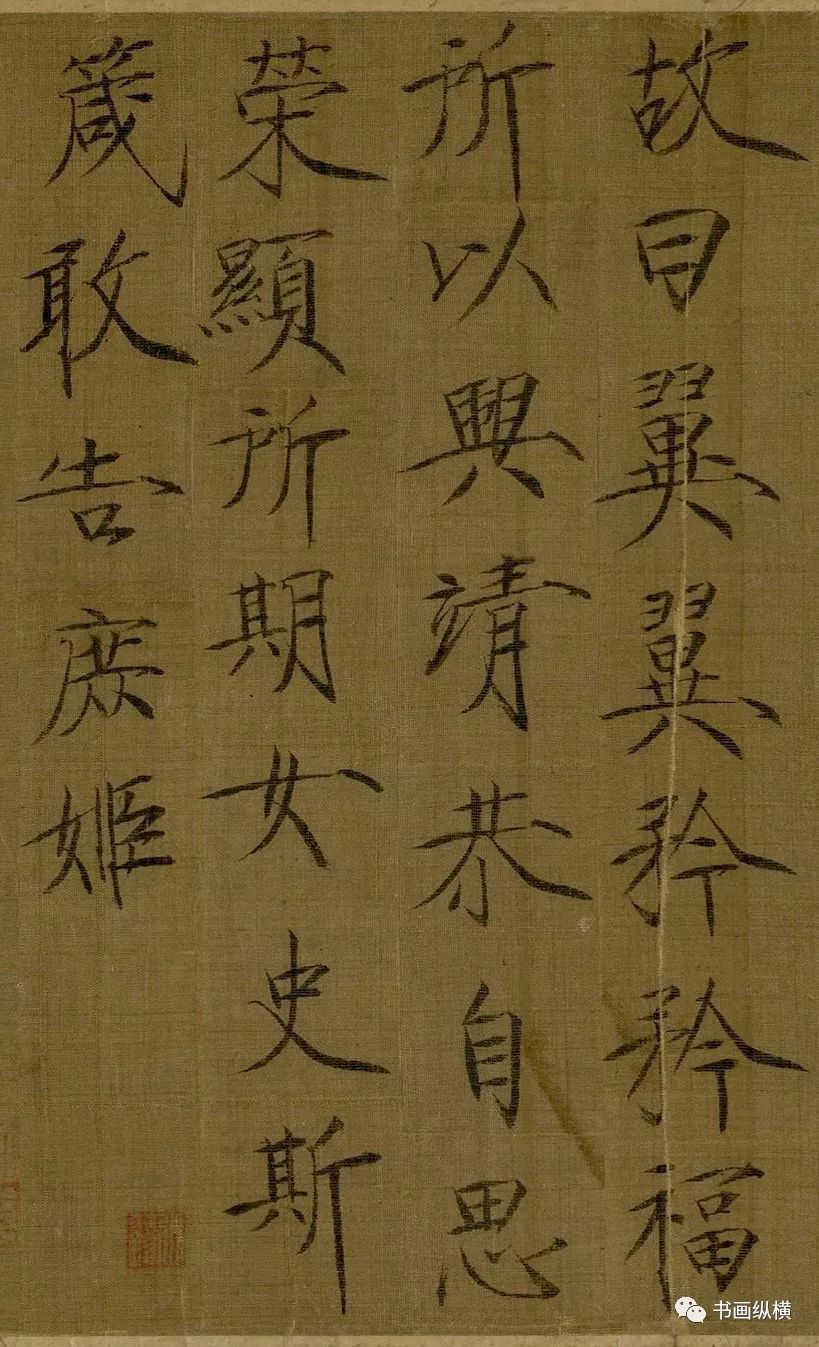 故曰翼翼矜矜福
所以興靖恭自思
榮顯所期女史斯
箴敢告庶姬
书画纵横